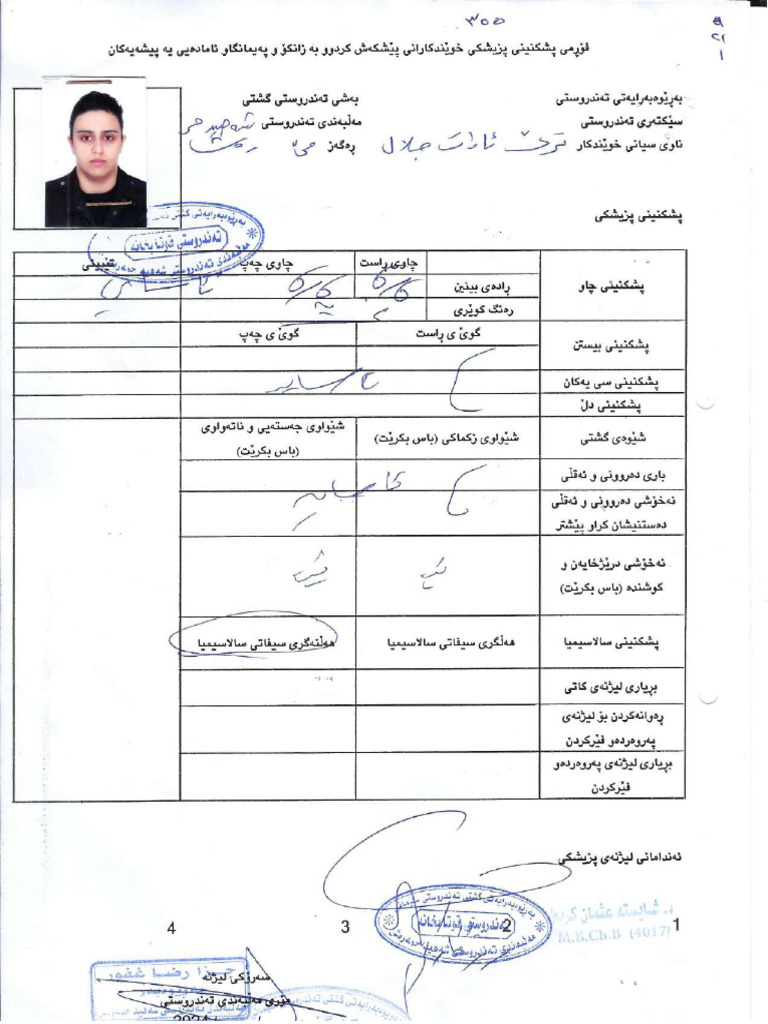 ٣٥٥
٩
٢١
١
فۆڕمی پشکنینی پزیشکی خوێندکارانی پێشکەش کردوو بە زانکۆ و پەیمانگاو ئامادەیی یە پیشەیەکان
بەڕێوەبەرایەتی تەندروستی بەشی تەندروستی گشتی
سێکتەری تەندروستی مەڵبەندی تەندروستی شەهید
ناوی سیانی خوێندکار ئارات جلال ڕەگەز مێ
پشکنینی پزیشکی
تەندروستی قوتابخانە
پشکنینی چاو چاوی ڕاست چاوی چەپ تێبینی
ڕادەی بینین ٦/٦ ٦/٦ ئاسایی
ڕەنگ کوێری
پشکنینی بیستن گوێ ی ڕاست گوێ ی چەپ
پشکنینی سی یەکان ئاسایی
پشکنینی دڵ
شێوەی گشتی شێواوی زکماکی (باس بکرێت) شێواوی جەستەیی و ناتەواوی (باس بکرێت)
باری دەروونی و ئەقڵی ئاسایی
نەخۆشی دەروونی و ئەقڵی دەستنیشان کراو پێشتر
نەخۆشی درێژخایەن و کوشندە (باس بکرێت) نیە نیە
پشکنینی سالاسیمیا هەڵگری سیفاتی سالاسیمیا هەڵنەگری سیفاتی سالاسیمیا
بڕیاری لیژنەی کاتی
ڕەوانەکردن بۆ لیژنەی پەروەردەو فێرکردن
بڕیاری لیژنەی پەروەردەو فێرکردن
ئەندامانی لیژنەی پزیشکی
1 2 3 4
د. شایسته عثمان
M.B.Ch.B (4017)
تەندروستی قوتابخانە
رضا غفور
سەرۆکی لیژنە
مۆری مەڵبەندی تەندروستی
2024/